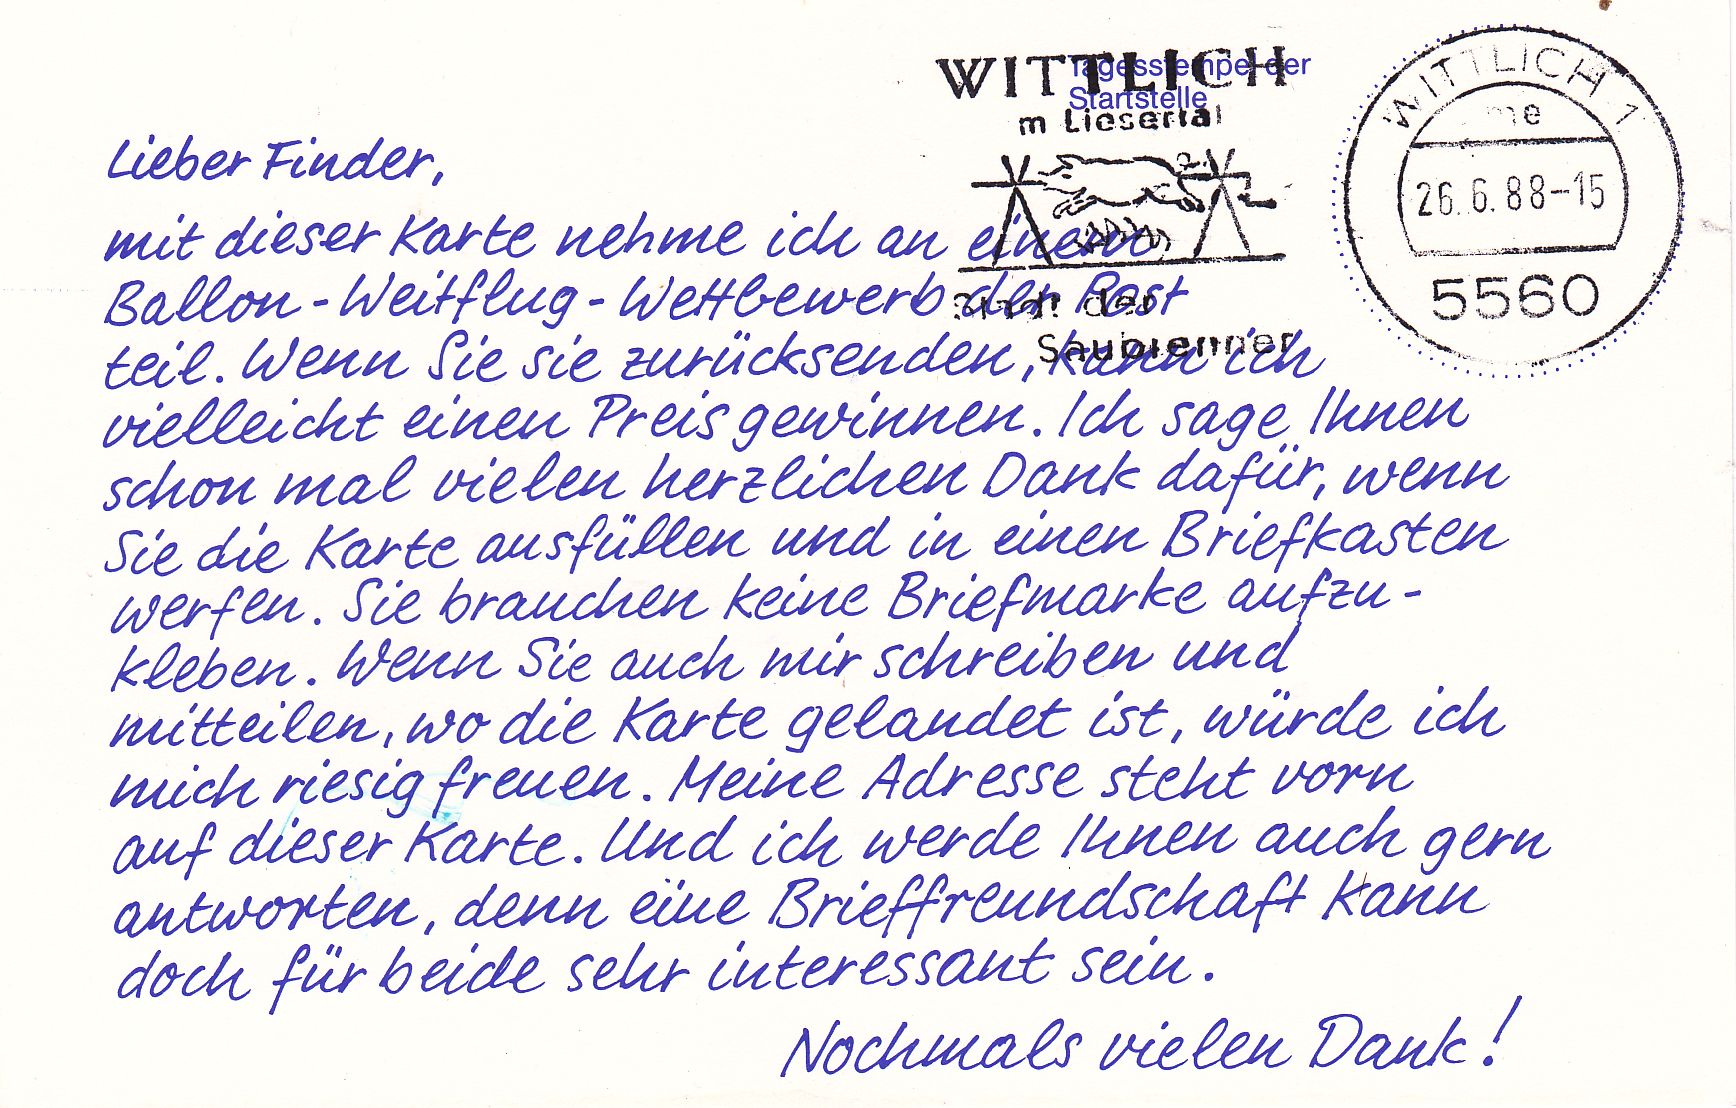 WITTLICH
Tagesstempel der
Startstelle
m Liesertal
Stadt der
Saubrenner
WITTLICH 1
me
26.6.88-15
5560
Lieber Finder,
mit dieser Karte nehme ich an einem
Ballon-Weitflug-Wettbewerb der Post
teil. Wenn Sie sie zurücksenden, kann ich
vielleicht einen Preis gewinnen. Ich sage Ihnen
schon mal vielen herzlichen Dank dafür, wenn
Sie die Karte ausfüllen und in einen Briefkasten
werfen. Sie brauchen keine Briefmarke aufzu-
kleben. Wenn Sie auch mir schreiben und
mitteilen, wo die Karte gelandet ist, würde ich
mich riesig freuen. Meine Adresse steht vorn
auf dieser Karte. Und ich werde Ihnen auch gern
antworten, denn eine Brieffreundschaft kann
doch für beide sehr interessant sein.
Nochmals vielen Dank!